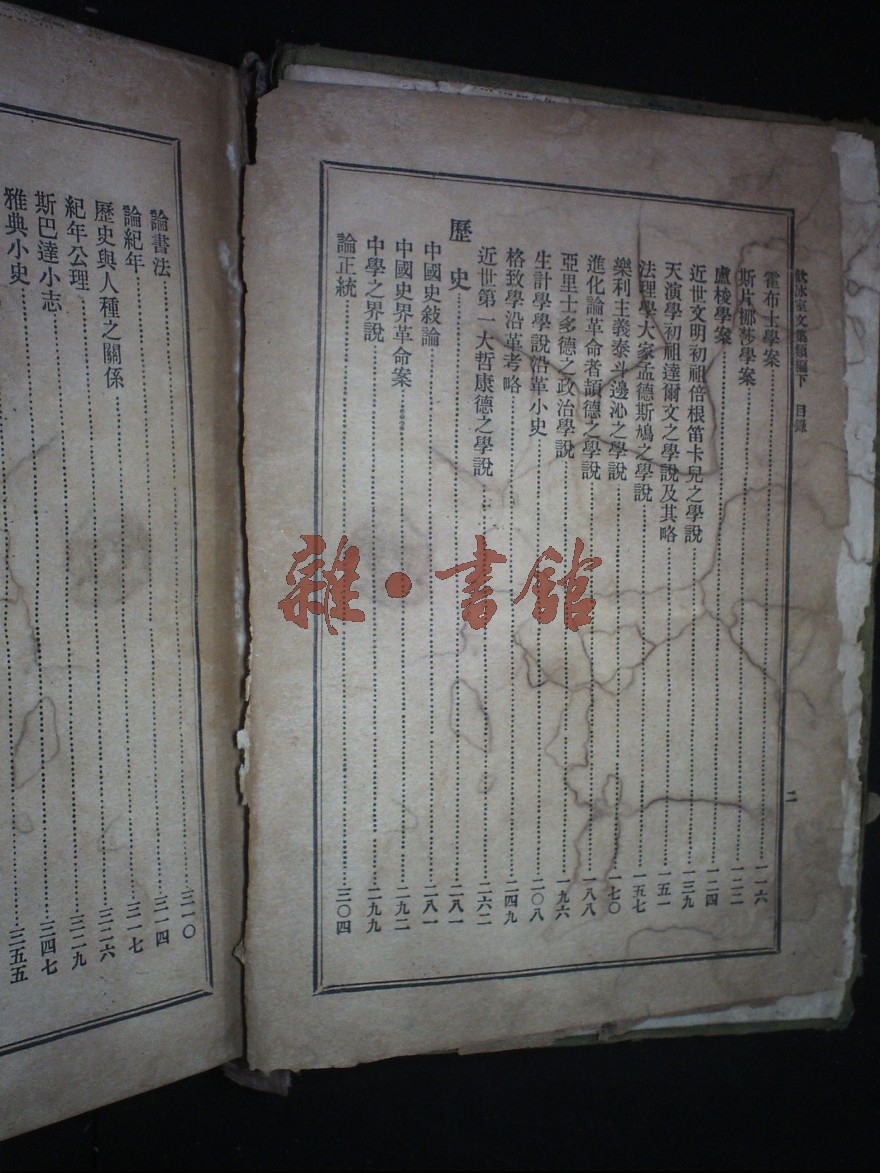 飲冰室文集類編下 目錄 二
霍布士學案 一一六
斯片挪莎學案 一二二
盧梭學案 一二四
近世文明初祖倍根笛卡兒之學說 一三九
天演學初祖達爾文之學說及其略 一五一
法理學大家孟德斯鳩之學說 一五七
樂利主義泰斗邊沁之學說 一七〇
進化論革命者頡德之學說 一八八
亞里士多德之政治學說 一九六
生計學學說沿革小史 二〇八
格致學沿革考略 二四九
近世第一大哲康德之學說 二六二
歷史 二八一
中國史敍論 二八一
中國史界革命案 二九二
中學之界說 二九九
論正統 三〇四
論書法 三一〇
論紀年 三一四
歷史與人種之關係 三一七
紀年公理 三二六
斯巴達小志 三二九
雅典小史 三四七
三五五
雜·書館